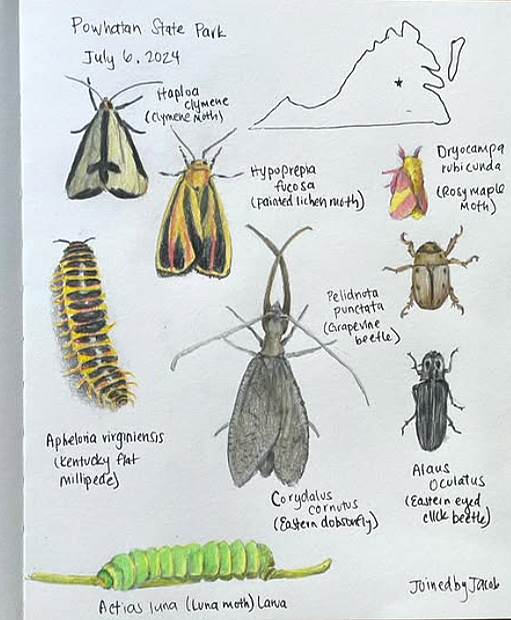 Powhatan State Park
July 6, 2024
Haploa
clymene
(Clymene Moth)
Hypoprepia
fucosa
(painted lichen moth)
Dryocampa
rubicunda
(Rosy maple
Moth)
Pelidnota
punctata
(Grapevine
beetle)
Apheloria virginiensis
(Kentucky flat
millipede)
Corydalus
cornutus
(Eastern dobsonfly)
Alaus
oculatus
(Eastern eyed
click beetle)
Actias luna (Luna moth) Larva
JoinedbyJacob